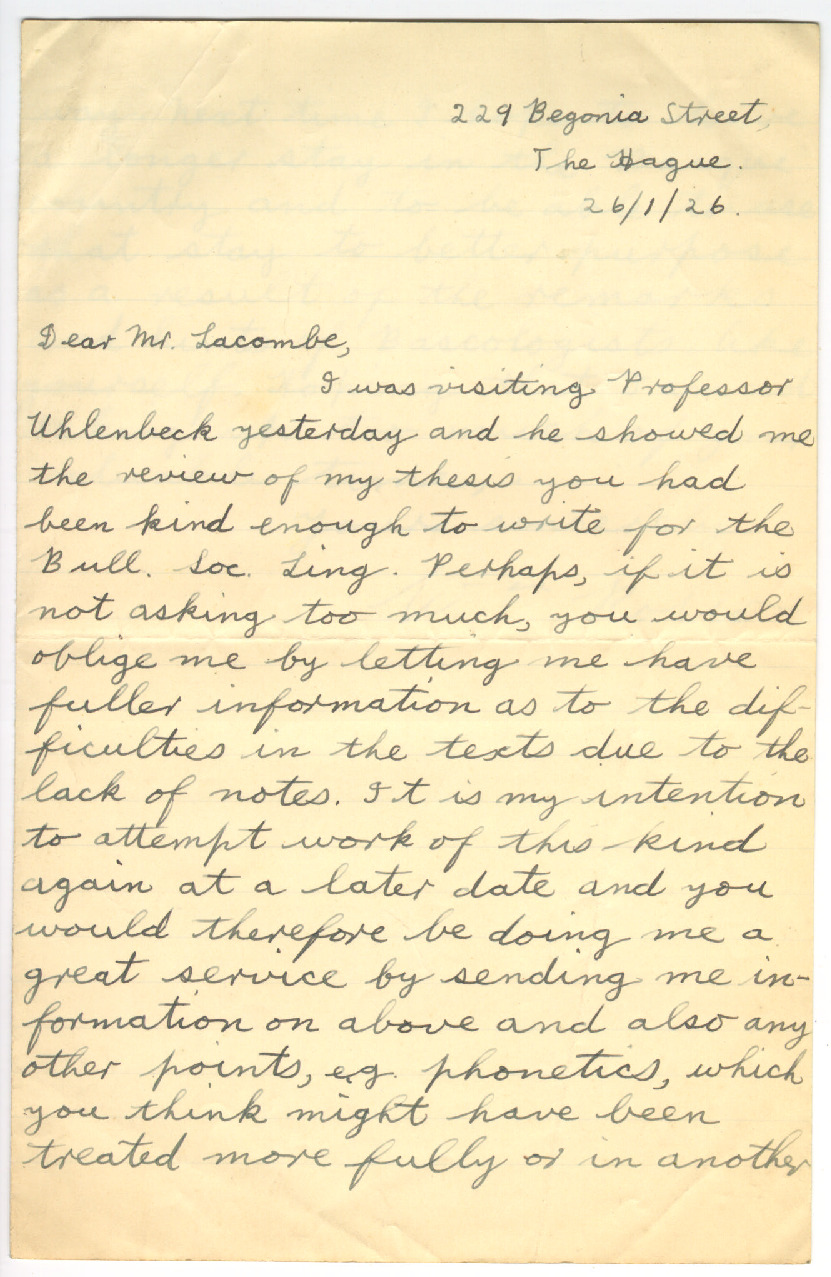 229 Begonia Street,
The Hague.
26/1/26.
Dear Mr. Lacombe,
I was visiting Professor
Uhlenbeck yesterday and he showed me
the review of my thesis you had
been kind enough to write for the
Bull. Soc. Ling. Perhaps, if it is
not asking too much, you would
oblige me by letting me have
fuller information as to the dif-
ficulties in the texts due to the
lack of notes. It is my intention
to attempt work of this kind
again at a later date and you
would therefore be doing me a
great service by sending me in-
formation on above and also any
other points, e.g. phonetics, which
you think might have been
treated more fully or in another